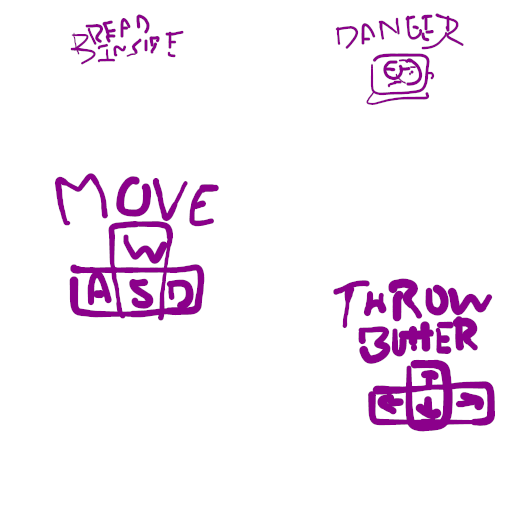 BREAD
INSIDE
DANGER
MOVE
W
A S D
THROW
BUTTER
↑
← ↓ →